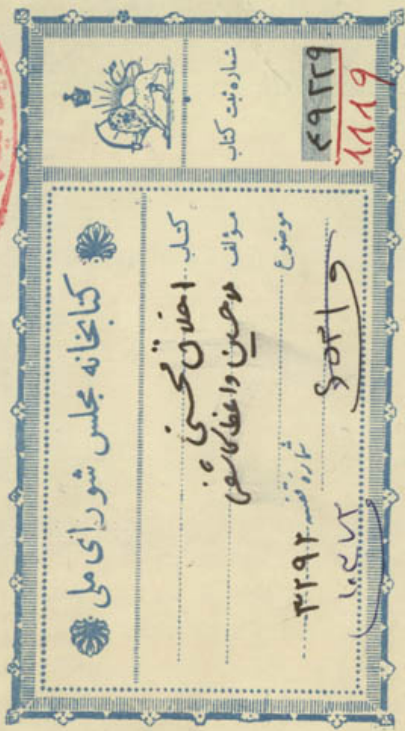 کتابخانه مجلس شورای ملی
کتاب اخلاق محسنی
مؤلف ملا حسین واعظ کاشفی
موضوع
شماره قفسه ۳۲۹۲
۱۰۴۷۲
شماره ثبت کتاب
۴۹۲۲۹
۱۱۱۹